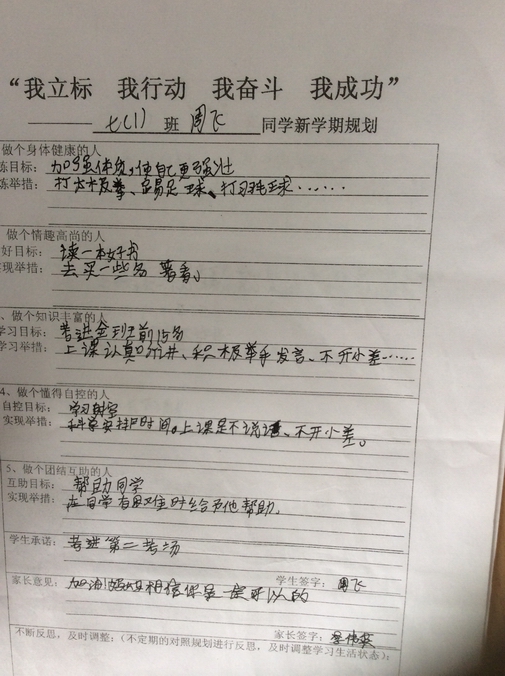 “我立标 我行动 我奋斗 我成功”
七(1) 班 周飞 同学新学期规划
做个身体健康的人
炼目标: 加强体质,使自己更强壮
炼举措: 打太极拳、踢足球、打羽毛球……
做个情趣高尚的人
好目标: 读一本好书
实现举措: 去买一些名著看。
、做个知识丰富的人
学习目标: 考进全班前15名
学习举措: 上课认真听讲、积极举手发言、不开小差……
4、做个懂得自控的人
自控目标: 学习时空
实现举措: 科学安排时间。上课是不说话、不开小差。
5、做个团结互助的人
互助目标: 帮助同学
实现举措: 在同学有困难时给予他帮助。
学生承诺: 考进第二考场
家长意见: 加油!妈妈相信你是一定可以的 学生签字: 周飞
家长签字:
不断反思,及时调整:(不定期的对照规划进行反思,及时调整学习生活状态):